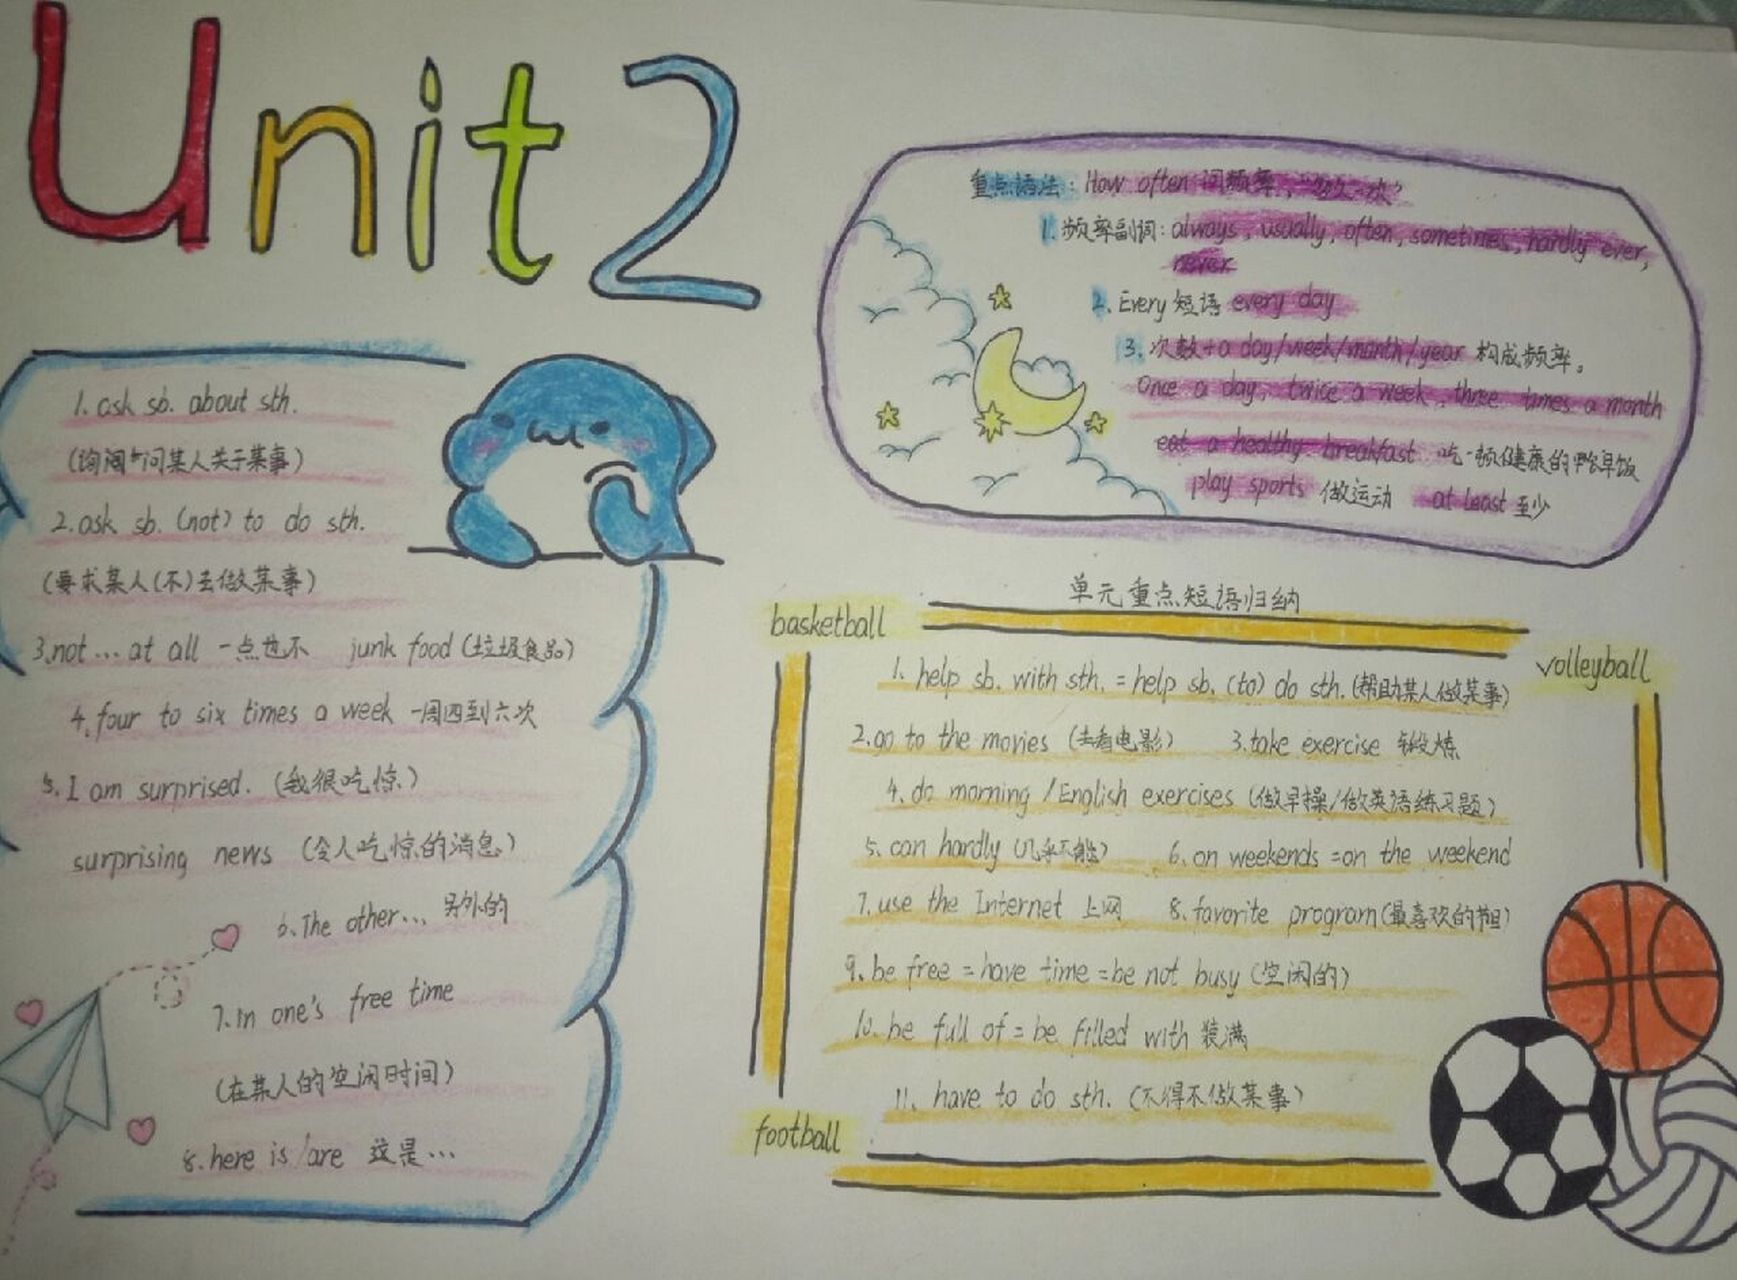 Unit 2
1. ask sb. about sth.
(询问问某人关于某事)
2. ask sb. (not) to do sth.
(要求某人(不)去做某事)
3. not ... at all 一点也不 junk food (垃圾食品)
4. four to six times a week 一周四到六次
5. I am surprised. (我很吃惊)
surprising news (令人吃惊的消息)
6. The other... 另外的
7. In one's free time
(在某人的空闲时间)
8. here is/are 这是...
重点语法: How often 问频率, "多久一次"
1. 频率副词: always, usually, often, sometimes, hardly ever,
never
2. Every 短语 every day
3. 次数+a day/week/month/year 构成频率。
Once a day, twice a week, three times a month
eat a healthy breakfast 吃一顿健康的早饭
play sports 做运动 at least 至少
单元重点短语归纳
basketball
volleyball
1. help sb. with sth. = help sb. (to) do sth. (帮助某人做某事)
2. go to the movies (去看电影) 3. take exercise 锻炼
4. do morning / English exercises (做早操/做英语练习题)
5. can hardly (几乎不能) 6. on weekends = on the weekend
7. use the Internet 上网 8. favorite program (最喜欢的节目)
9. be free = have time = be not busy (空闲的)
10. be full of = be filled with 装满
11. have to do sth. (不得不做某事)
football